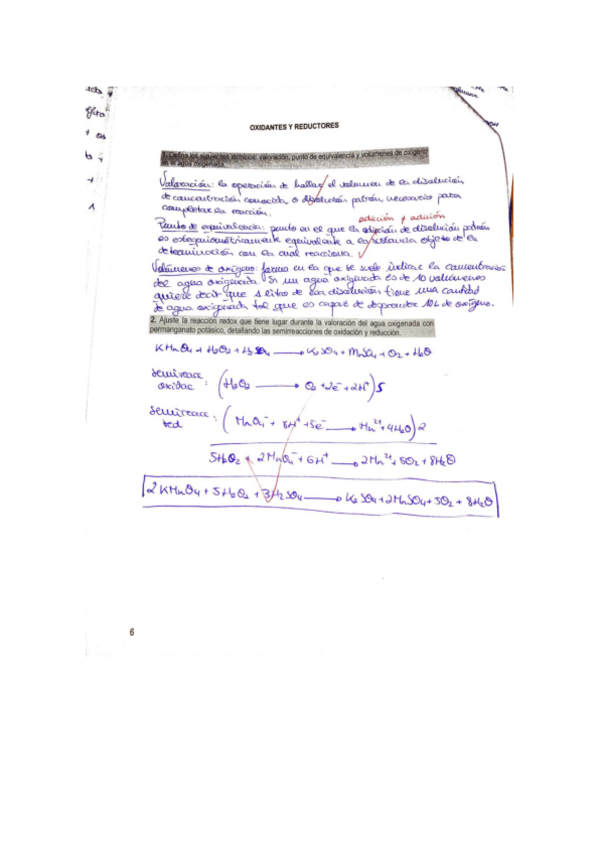 OXIDANTES Y REDUCTORES
1. Defina los siguientes términos: valoración, punto de equivalencia y volúmenes de oxígeno
en el agua oxigenada.
Valoración: la operación de hallar el volumen de la disolución
de concentración conocida, o disolución patrón, necesario para
completar la reacción.
adición ≠ adición
Punto de equivalencia: punto en el que la adición de disolución patrón
es estequiométricamente equivalente a la sustancia objeto de la
determinación con la cual reacciona.
Volúmenes de oxígeno: forma en la que se suele indicar la concentración
del agua oxigenada. Si un agua oxigenada es de 10 volúmenes
quiere decir que 1 litro de esa disolución tiene una cantidad
de agua oxigenada tal que es capaz de desprender 10L de oxígeno.
2. Ajuste la reacción redox que tiene lugar durante la valoración del agua oxigenada con
permanganato potásico, detallando las semirreacciones de oxidación y reducción.
KMnO4 + H2O2 + H2SO4 → K2SO4 + MnSO4 + O2 + H2O
Semireacc oxidac : (H2O2 → O2 + 2e⁻ + 2H⁺) 5
Semireacc red : (MnO4⁻ + 8H⁺ + 5e⁻ → Mn²⁺ + 4H2O) 2
5H2O2 + 2MnO4⁻ + 6H⁺ → 2Mn²⁺ + 5O2 + 8H2O
2KMnO4 + 5H2O2 + 3H2SO4 → K2SO4 + 2MnSO4 + 5O2 + 8H2O
6